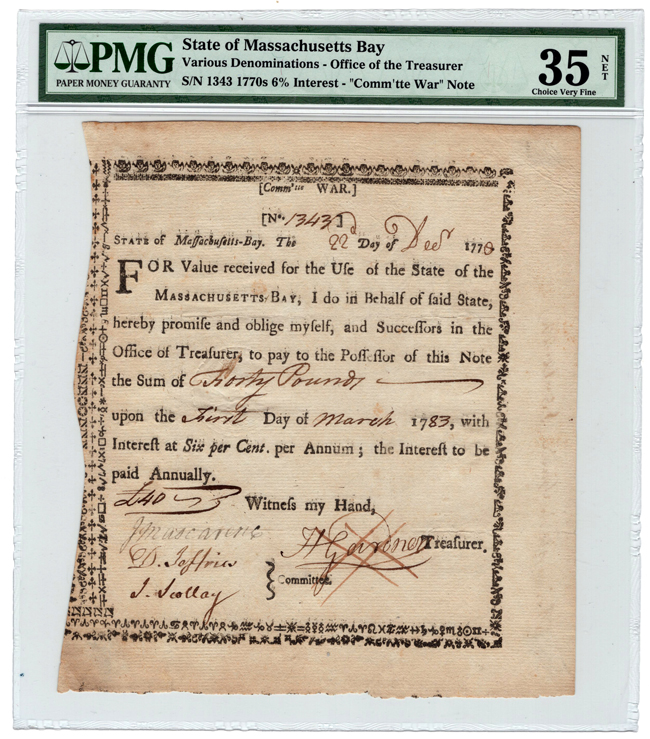 PMG
PAPER MONEY GUARANTY
State of Massachusetts Bay
Various Denominations - Office of the Treasurer
S/N 1343 1770s 6% Interest - "Comm'tte War" Note
35 NET
Choice Very Fine
[Comm'tte WAR.]
[No. 1343]
STATE of Maſſachuſetts-Bay. The 22d Day of Decr 1778
FOR Value received for the Uſe of the State of the
MASSACHUSETTS-BAY, I do in Behalf of ſaid State,
hereby promiſe and oblige myſelf, and Succeſſors in the
Office of Treaſurer, to pay to the Poſſeſſor of this Note
the Sum of Forty Pounds
upon the First Day of March 1783, with
Intereſt at Six per Cent. per Annum; the Intereſt to be
paid Annually.
£40 Witneſs my Hand,
H Gardner Treaſurer.
D. Jeffries
J. Scollay
Committee.